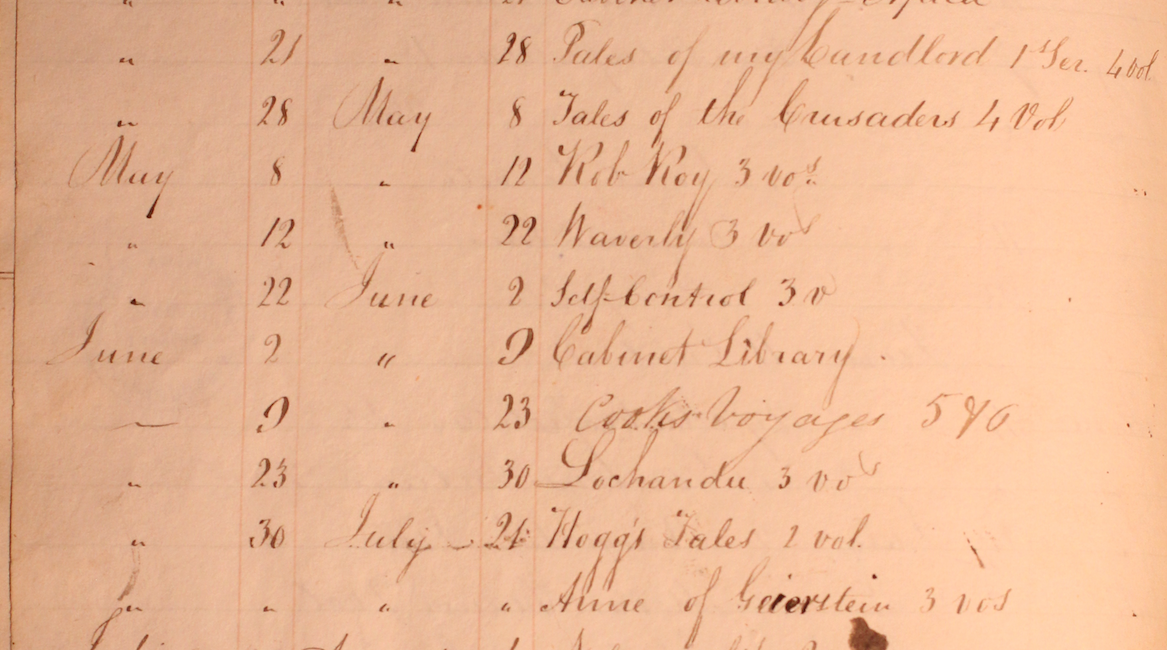 " 21 " 28 Tales of my Landlord 1st Ser. 4 vol
" 28 May 8 Tales of the Crusaders 4 Vol
May 8 " 12 Rob Roy 3 vols
" 12 " 22 Waverly 3 vol
" 22 June 2 Self-Control 3 v
June 2 " 9 Cabinet Library.
— 9 " 23 Cooks Voyages 5 & 6
" 23 " 30 Lochandu 3 vols
" 30 July 21 Hogg's Tales 2 vol.
" " " " Anne of Geierstein 3 vols